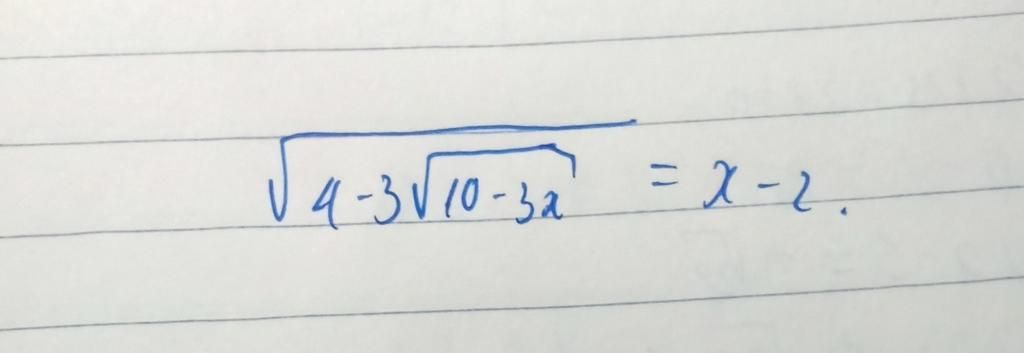 √(4-3√(10-3x)) = x-2.